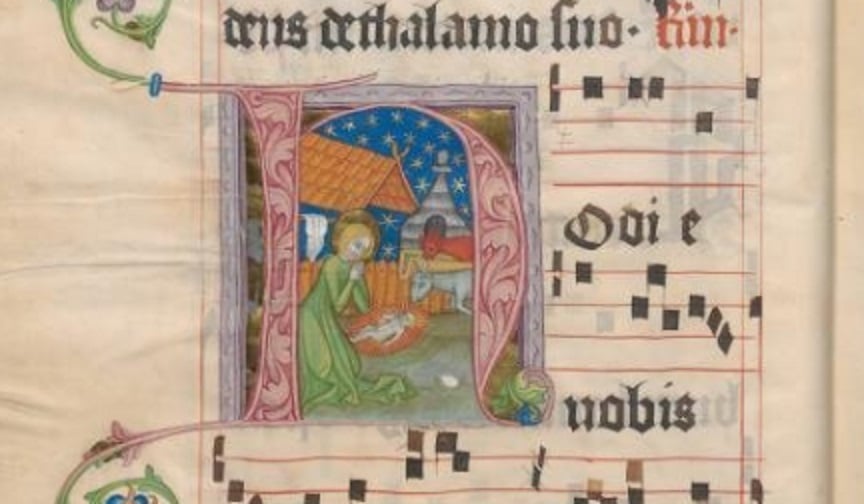 dens de thalamo suo.
H
Odi e
nobis